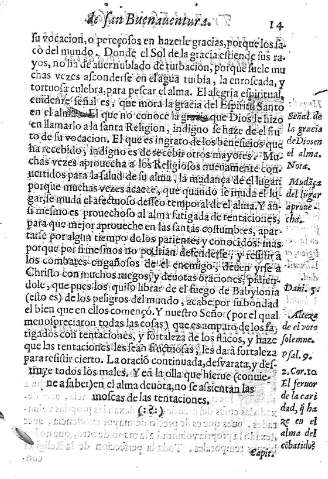 de san Buenauentura. 14
su vocacion, o pereçosos en hazerle gracias, porque los sa-
cò del mundo. Donde el Sol de la gracia estiende sus ra-
yos, no ha de auer nublado de turbacion, porque suele mu
chas vezes asconderse en el agua turbia, la enroscada, y
tortuosa culebra, para pescar el alma. El alegria espiritual,
euidente señal es, que mora la gracia del Espiritu Santo
en el alma. El que no conoce la gracia que Dios le hizo
en llamarlo a la santa Religion, indigno se haze de el fru
to de su vocacion. El que es ingrato de los beneficios que
ha recebido, indigno es de recebir otros mayores. Mu-
chas vezes aprouecha a los Religiosos nueuamente con-
uertidos para la salud de su alma, la mudança de el lugar
porque muchas vezes acaece, que quando se muda el lu
gar, se muda el afectuoso desseo temporal de el alma. Y an-
si mesmo es prouechoso al alma fatigada de tentaciones,
para que mejor aproueche en las santas costumbres, apar-
tarse por algun tiempo de los parientes y conocidos: mas
porque por si mesmos no podrian defenderse, y resistir a
los combates engañosos de el enemigo, deuen yrse a
Christo con muchos ruegos, y deuotas oraciones, pidien-
dole, que pues los quiso librar de el fuego de Babylonia
(esto es) de los peligros del mundo, acabe por su bondad
el bien que en ellos començò. Y nuestro Señor (por el qual
menospreciaron todas las cosas) que es amparo de los fa-
tigados con tentaciones, y fortaleza de los flacos, y haze
que las tentaciones les sean fructuosas, les darà fortaleza
para resistir cierto. La oraciõ continuada, desuarata, y des-
truye todos los males. Y en la olla que hierue (conuie-
ne a saber) en el alma deuota, no se assientan las
moscas de las tentaciones.
(:?:)
Señal de
la gracia
de Dios en
el alma.
Nota.
Mudãça
del lugar
aproue-
cha.
Dani. 3.
Alteza
de el voto
solemne.
Psal. 9.
2. Cor. 10
El feruor
de la cari
dad, q̃ ha
ze en el
alma del
Capit.